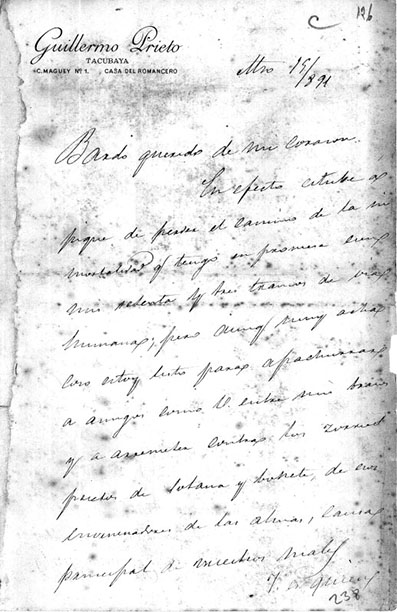 C
126
Guillermo Prieto
TACUBAYA
C. MAGUEY Nº 1. CASA DEL ROMANCERO
Mzo 15/891
Bardo querido de mi corazon.
En efecto estube a
pique de perder el camino de la in
mortalidad q tengo en promesa
mis setenta y tres tramos de vias
humanas; pero aunq muy achas
coso estoy listo para apachurrar
a amigos como U. entre mis brazos
y a arremeter contra los zorros
prietos de sotana y bonete, de esos
envenenadores de las almas, causa
principal de nuestros males
238